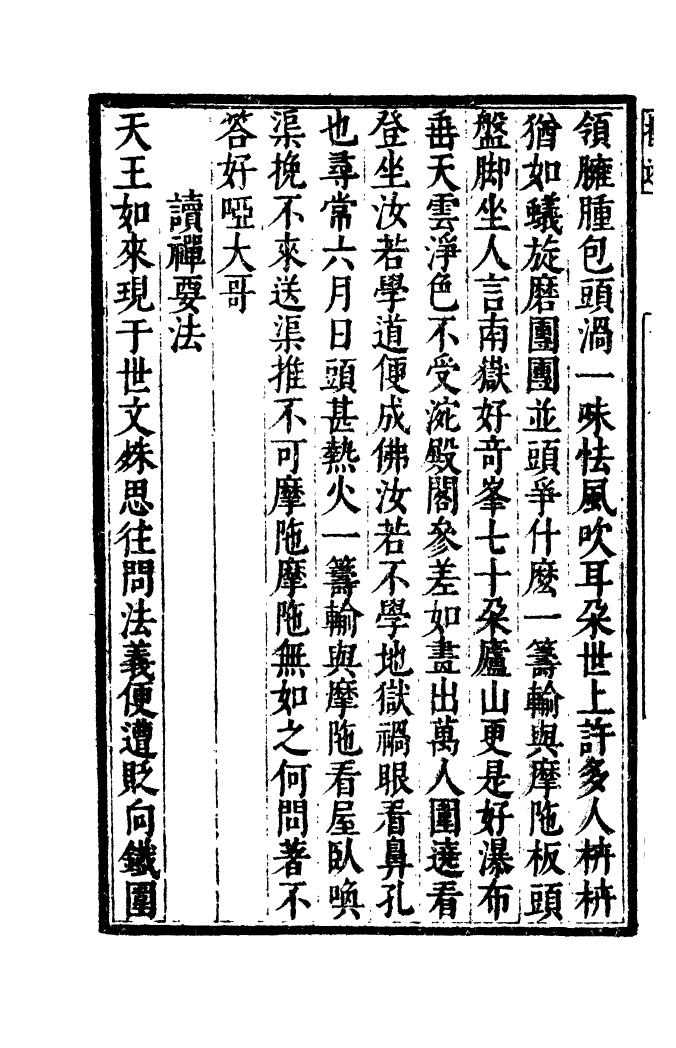 領臃腫包頭渦一味怯風吹耳朶世上許多人枿枿
猶如蟻旋磨團團並頭爭什麽一籌輸與摩陁板頭
盤脚坐人言南嶽好竒峯七十朶廬山更是好瀑布
垂天雲淨色不受涴殿閣參差如畫出萬人圍遶看
登坐汝若學道便成佛汝若不學地獄禍眼看鼻孔
也尋常六月日頭甚熱火一籌輸與摩陁看屋臥喚
渠挽不來送渠推不可摩陁摩陁無如之何問著不
答好啞大哥
讀禪要法
天王如來現于世文姝思往問法義便遭貶向鐵圍